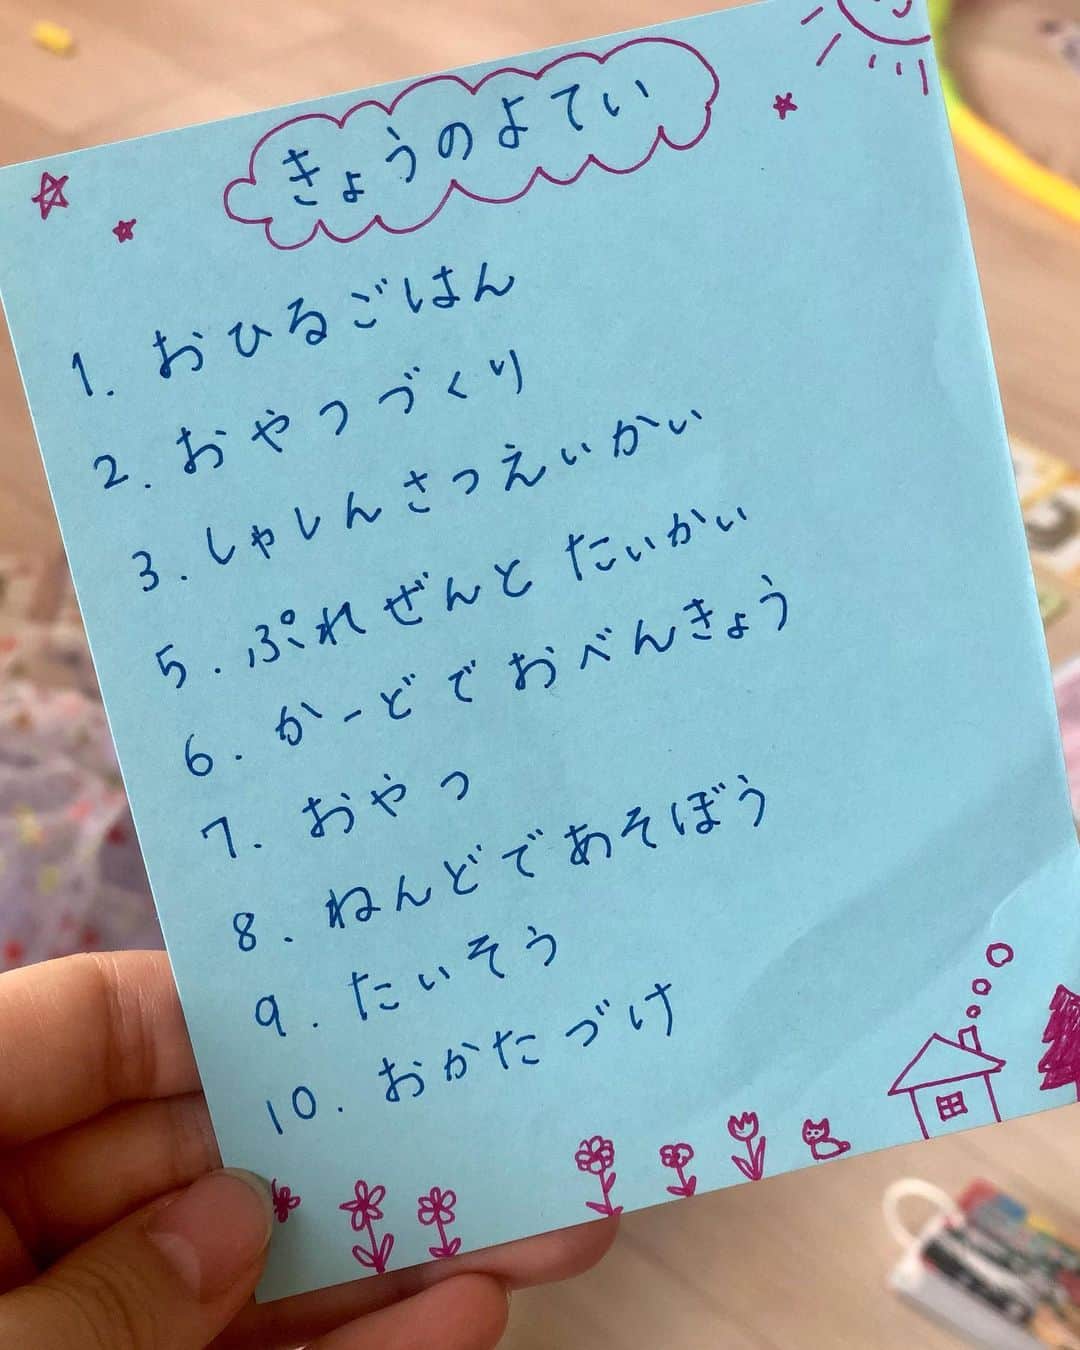 きょうのよてい
1. おひるごはん
2. おやつづくり
3. しゃしんさつえいかい
5. ぷれぜんと たいかい
6. かーどで おべんきょう
7. おやつ
8. ねんどであそぼう
9. たいそう
10. おかたづけ